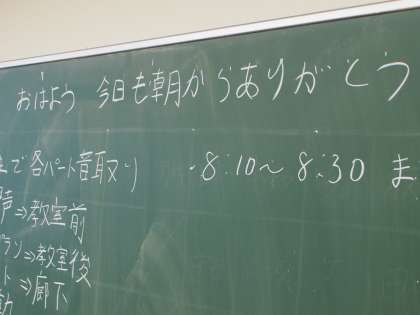 おはよう 今日も朝からありがとう
まで各パート音取り ・8:10～8:30 ま
声⇒教室前
プラン⇒教室後
ト⇒廊下
動